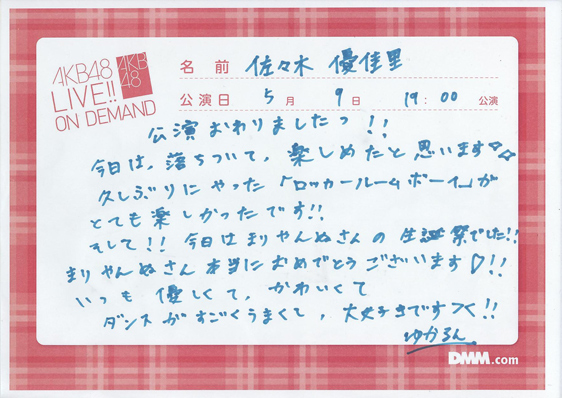 AKB48
LIVE!!
ON DEMAND
AKB
48
名前 佐々木 優佳里
公演日 5月 9日 19:00 公演
公演おわりましたっ!!
今日は、落ちついて、楽しめたと思います♡♡
久しぶりにやった「ロッカールームボーイ」が
とても楽しかったです!!
そして!! 今日はまりやんぬさんの生誕祭でした!!
まりやんぬさん本当におめでとうございます♡!!
いつも優しくて、かわいくて
ダンスがすごくうまくし、大好きですっ!!
ゆかるん
DMM.com